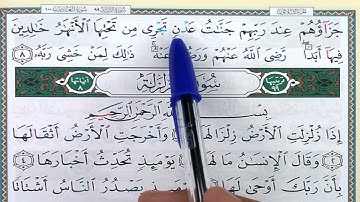 جَزَآؤُهُمْ عِندَ رَبِّهِمْ جَنَّٰتُ عَدْنٍ تَجْرِى مِن تَحْتِهَا ٱلْأَنْهَٰرُ خَٰلِدِينَ
فِيهَآ أَبَدًا رَّضِىَ ٱللَّهُ عَنْهُمْ وَرَضُوا۟ عَنْهُ ذَٰلِكَ لِمَنْ خَشِىَ رَبَّهُۥ ٨
سُورَةُ الزَّلْزَلَةِ
بِسْمِ ٱللَّهِ ٱلرَّحْمَٰنِ ٱلرَّحِيمِ
إِذَا زُلْزِلَتِ ٱلْأَرْضُ زِلْزَالَهَا وَأَخْرَجَتِ ٱلْأَرْضُ أَثْقَالَهَا
٢ وَقَالَ ٱلْإِنسَٰنُ مَا لَهَا يَوْمَئِذٍ تُحَدِّثُ أَخْبَارَهَا ٤
بِأَنَّ رَبَّكَ أَوْحَىٰ لَهَا يَوْمَئِذٍ يَصْدُرُ ٱلنَّاسُ أَشْتَاتًا